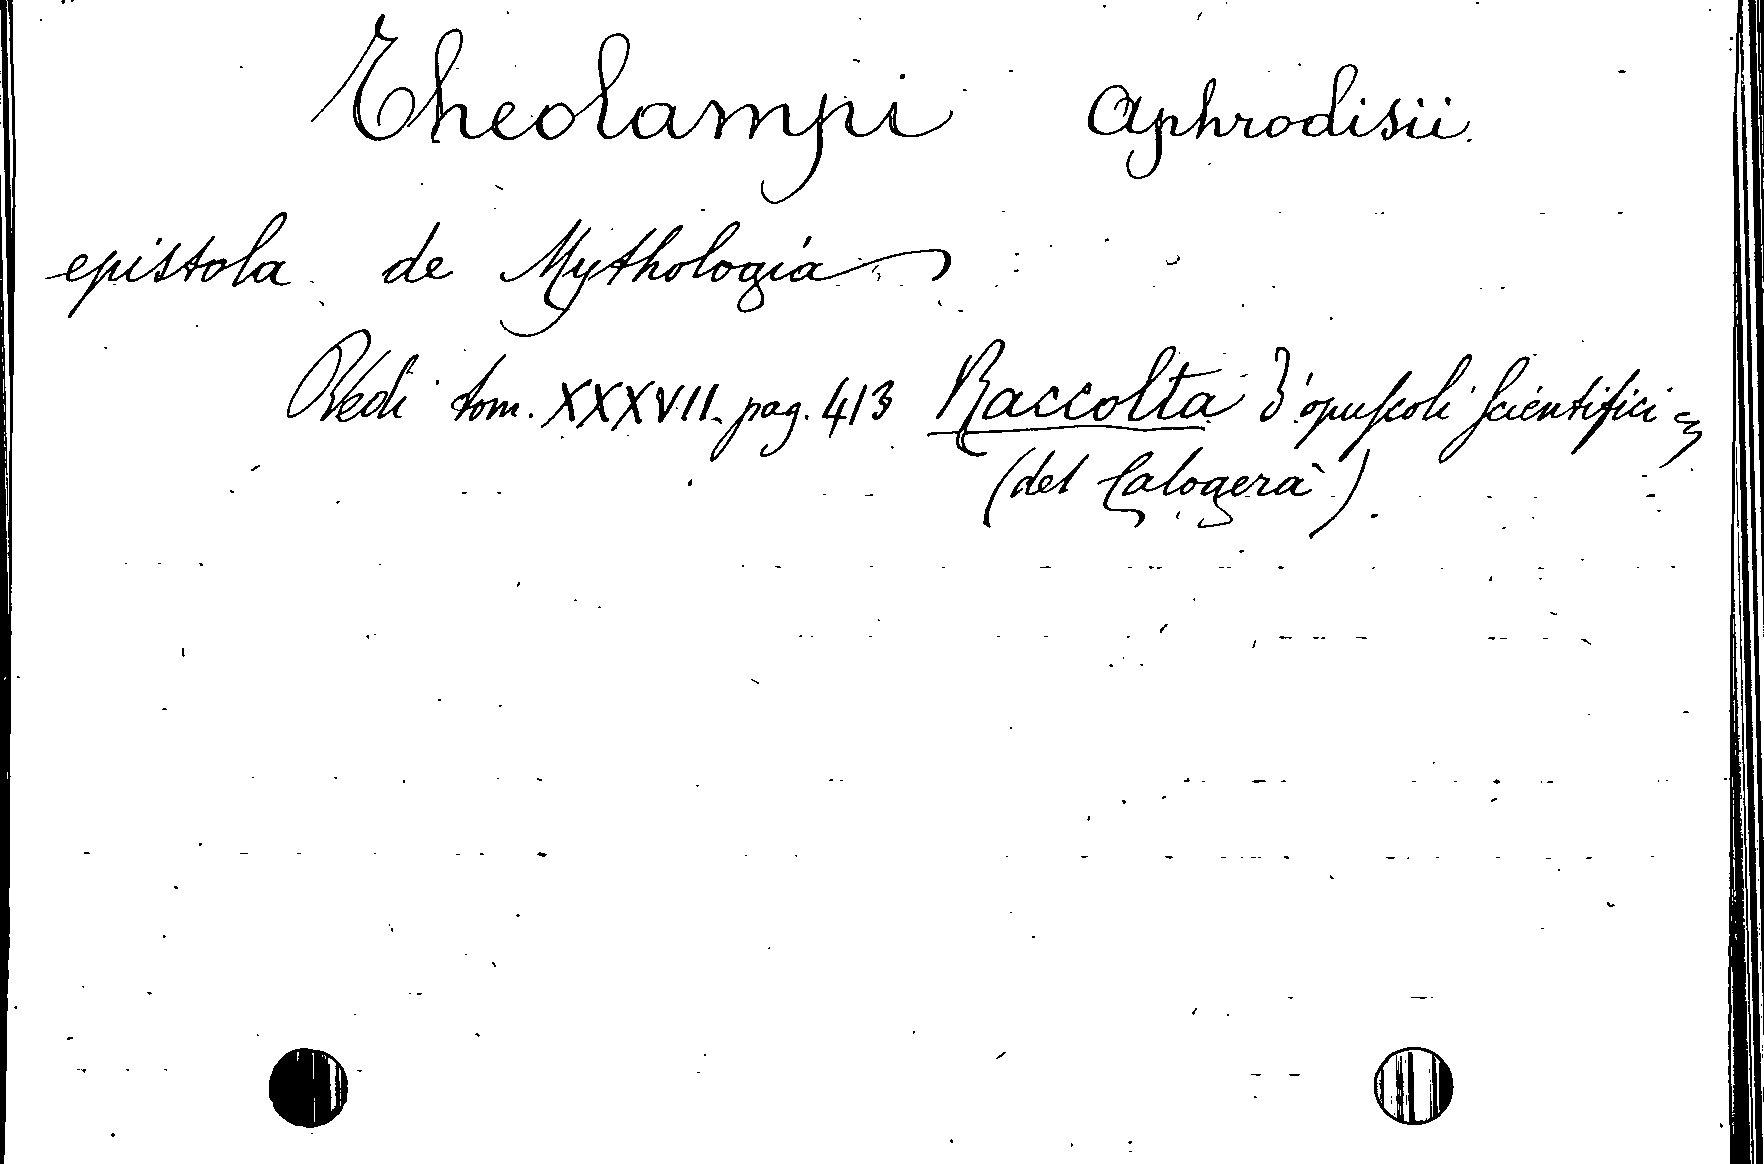 Theolampi Aphrodisii.
epistola de Mythologia
Vedi tom. XXXVII. pag. 413 Raccolta d'opuscoli scientifici
(del Calogerà)